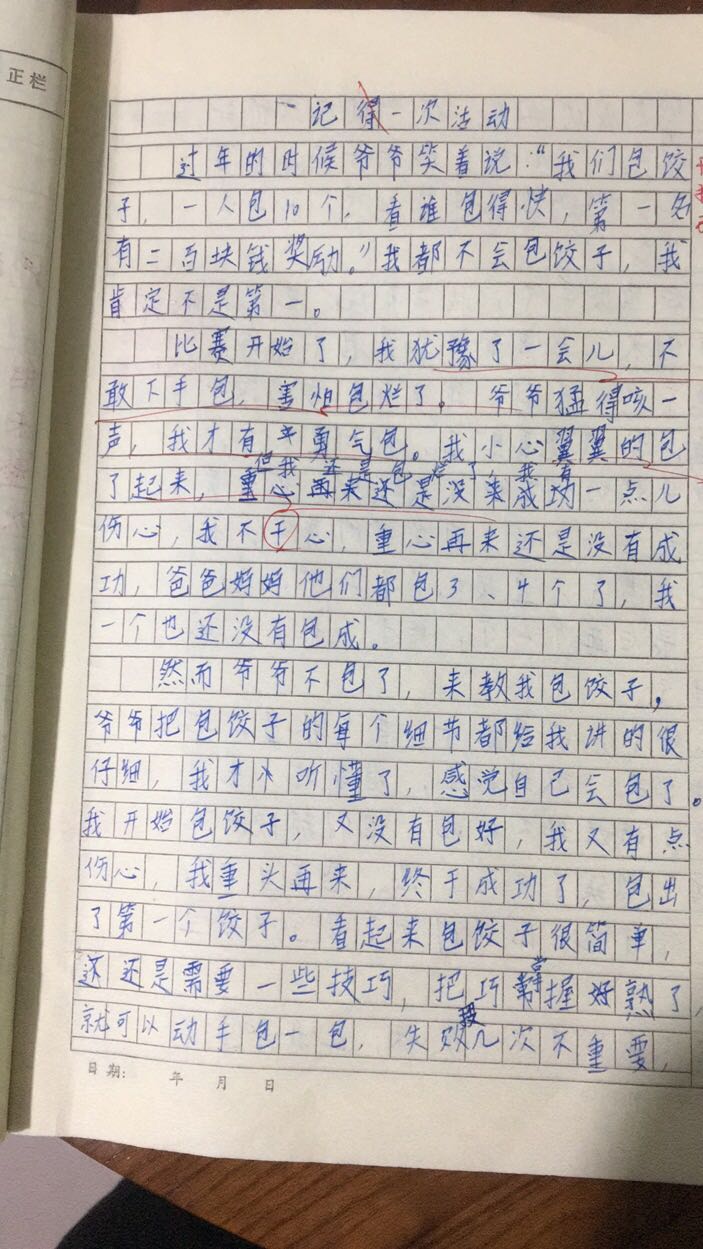 正栏
记得一次活动
过年的时候爷爷笑着说:“我们包饺
子,一人包10个,看谁包得快,第一名
有二百块钱奖励。”我都不会包饺子,我
肯定不是第一。
比赛开始了,我犹豫了一会儿,不
敢下手包,害怕包烂了。爷爷猛得咳一
声,我才有勇气包。我小心翼翼的包
但我还是包烂了,我有
了起来,重心再来还是没来成功一点儿
伤心,我不干心,重心再来还是没有成
功,爸爸妈妈他们都包3、4个了,我
一个也还没有包成。
然而爷爷不包了,来教我包饺子,
爷爷把包饺子的每个细节都给我讲的很
仔细,我才听懂了,感觉自己会包了。
我开始包饺子,又没有包好,我又有点
伤心,我重头再来,终于成功了,包出
了第一个饺子。看起来包饺子很简单,
还还是需要一些技巧,把巧掌握好熟了,
就可以动手包一包,失败几次不重要,
日期: 年 月 日